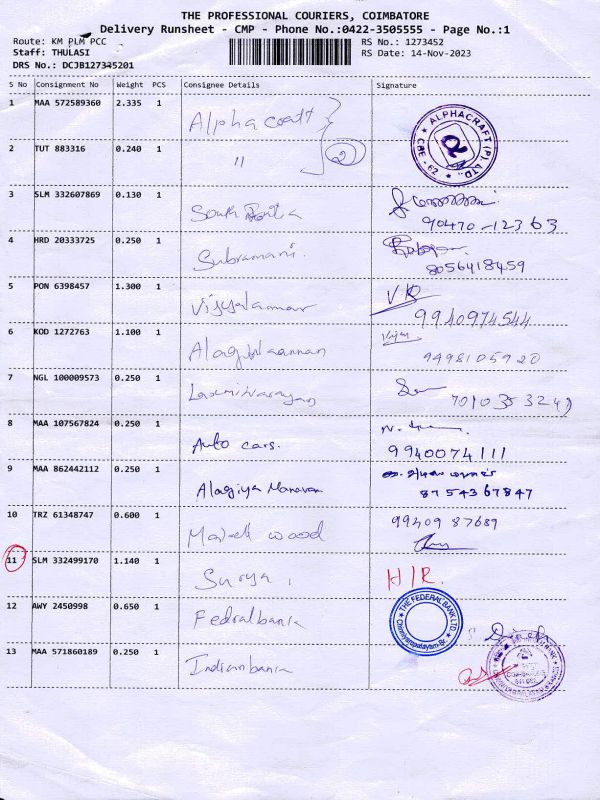 THE PROFESSIONAL COURIERS, COIMBATORE
Delivery Runsheet - CMP - Phone No.:0422-3505555 - Page No.:1
Route: KM PLM PCC
Staff: THULASI
DRS No.: DCJB127345201
RS No.: 1273452
RS Date: 14-Nov-2023
S No Consignment No Weight PCS Consignee Details Signature
1 MAA 572589360 2.335 1 Alpha craft
ALPHACRAFT (P) LTD. CBE-62
2 TUT 883316 0.240 1 " 2
3 SLM 332607869 0.130 1 South India
90470-12363
4 HRD 20333725 0.250 1 Subramani.
8056418459
5 PON 6398457 1.300 1 Vijyalamar VR
9940974544
6 KOD 1272763 1.100 1 Alagiraannan Vijay
9498105920
7 NGL 100009573 0.250 1 Laxminarayan
7010353249
8 MAA 107567824 0.250 1 Auto cars.
9940074111
9 MAA 862442112 0.250 1 Alagiya Manavan
8754367847
10 TRZ 61348747 0.600 1 wood
99409 87689
11 SLM 332499170 1.140 1 Surya, H/R.
12 AWY 2450998 0.650 1 Fedralbank
THE FEDERAL BANK LTD. Chinniyampalayam Br.
Dinesh
13 MAA 571860189 0.250 1 Indianbank